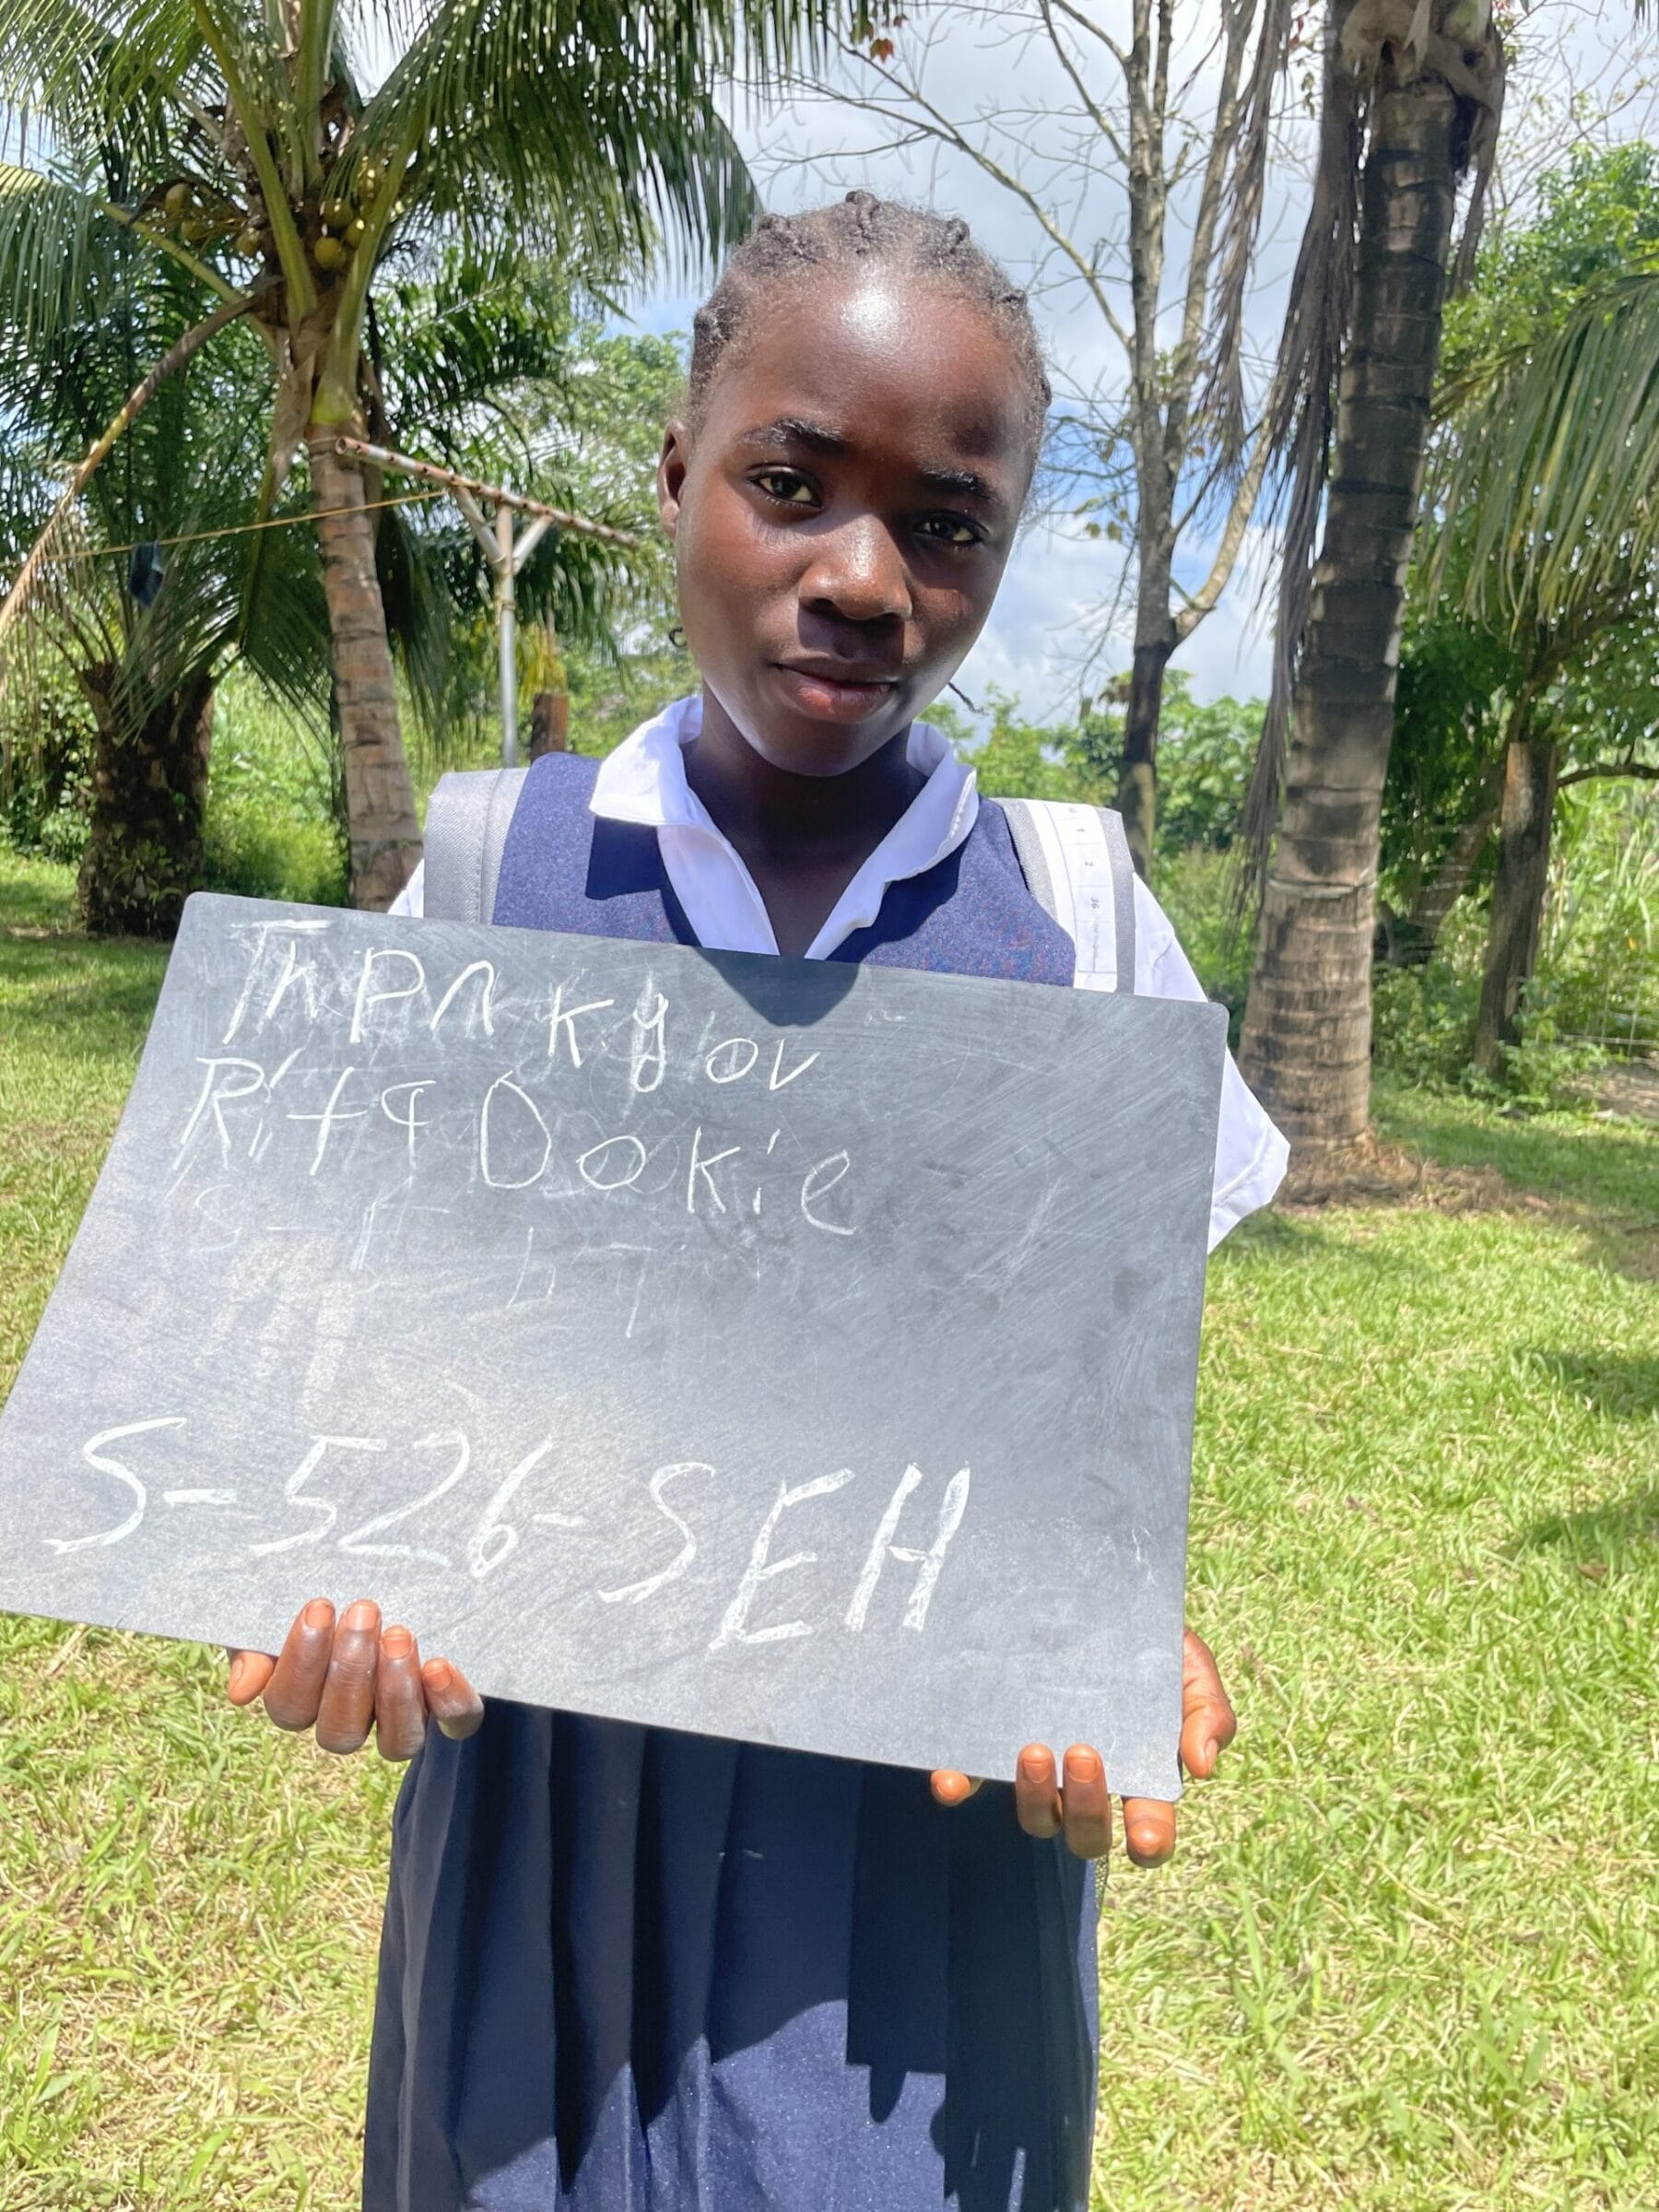 Thank you
Rita Dokie
S-526-SEH